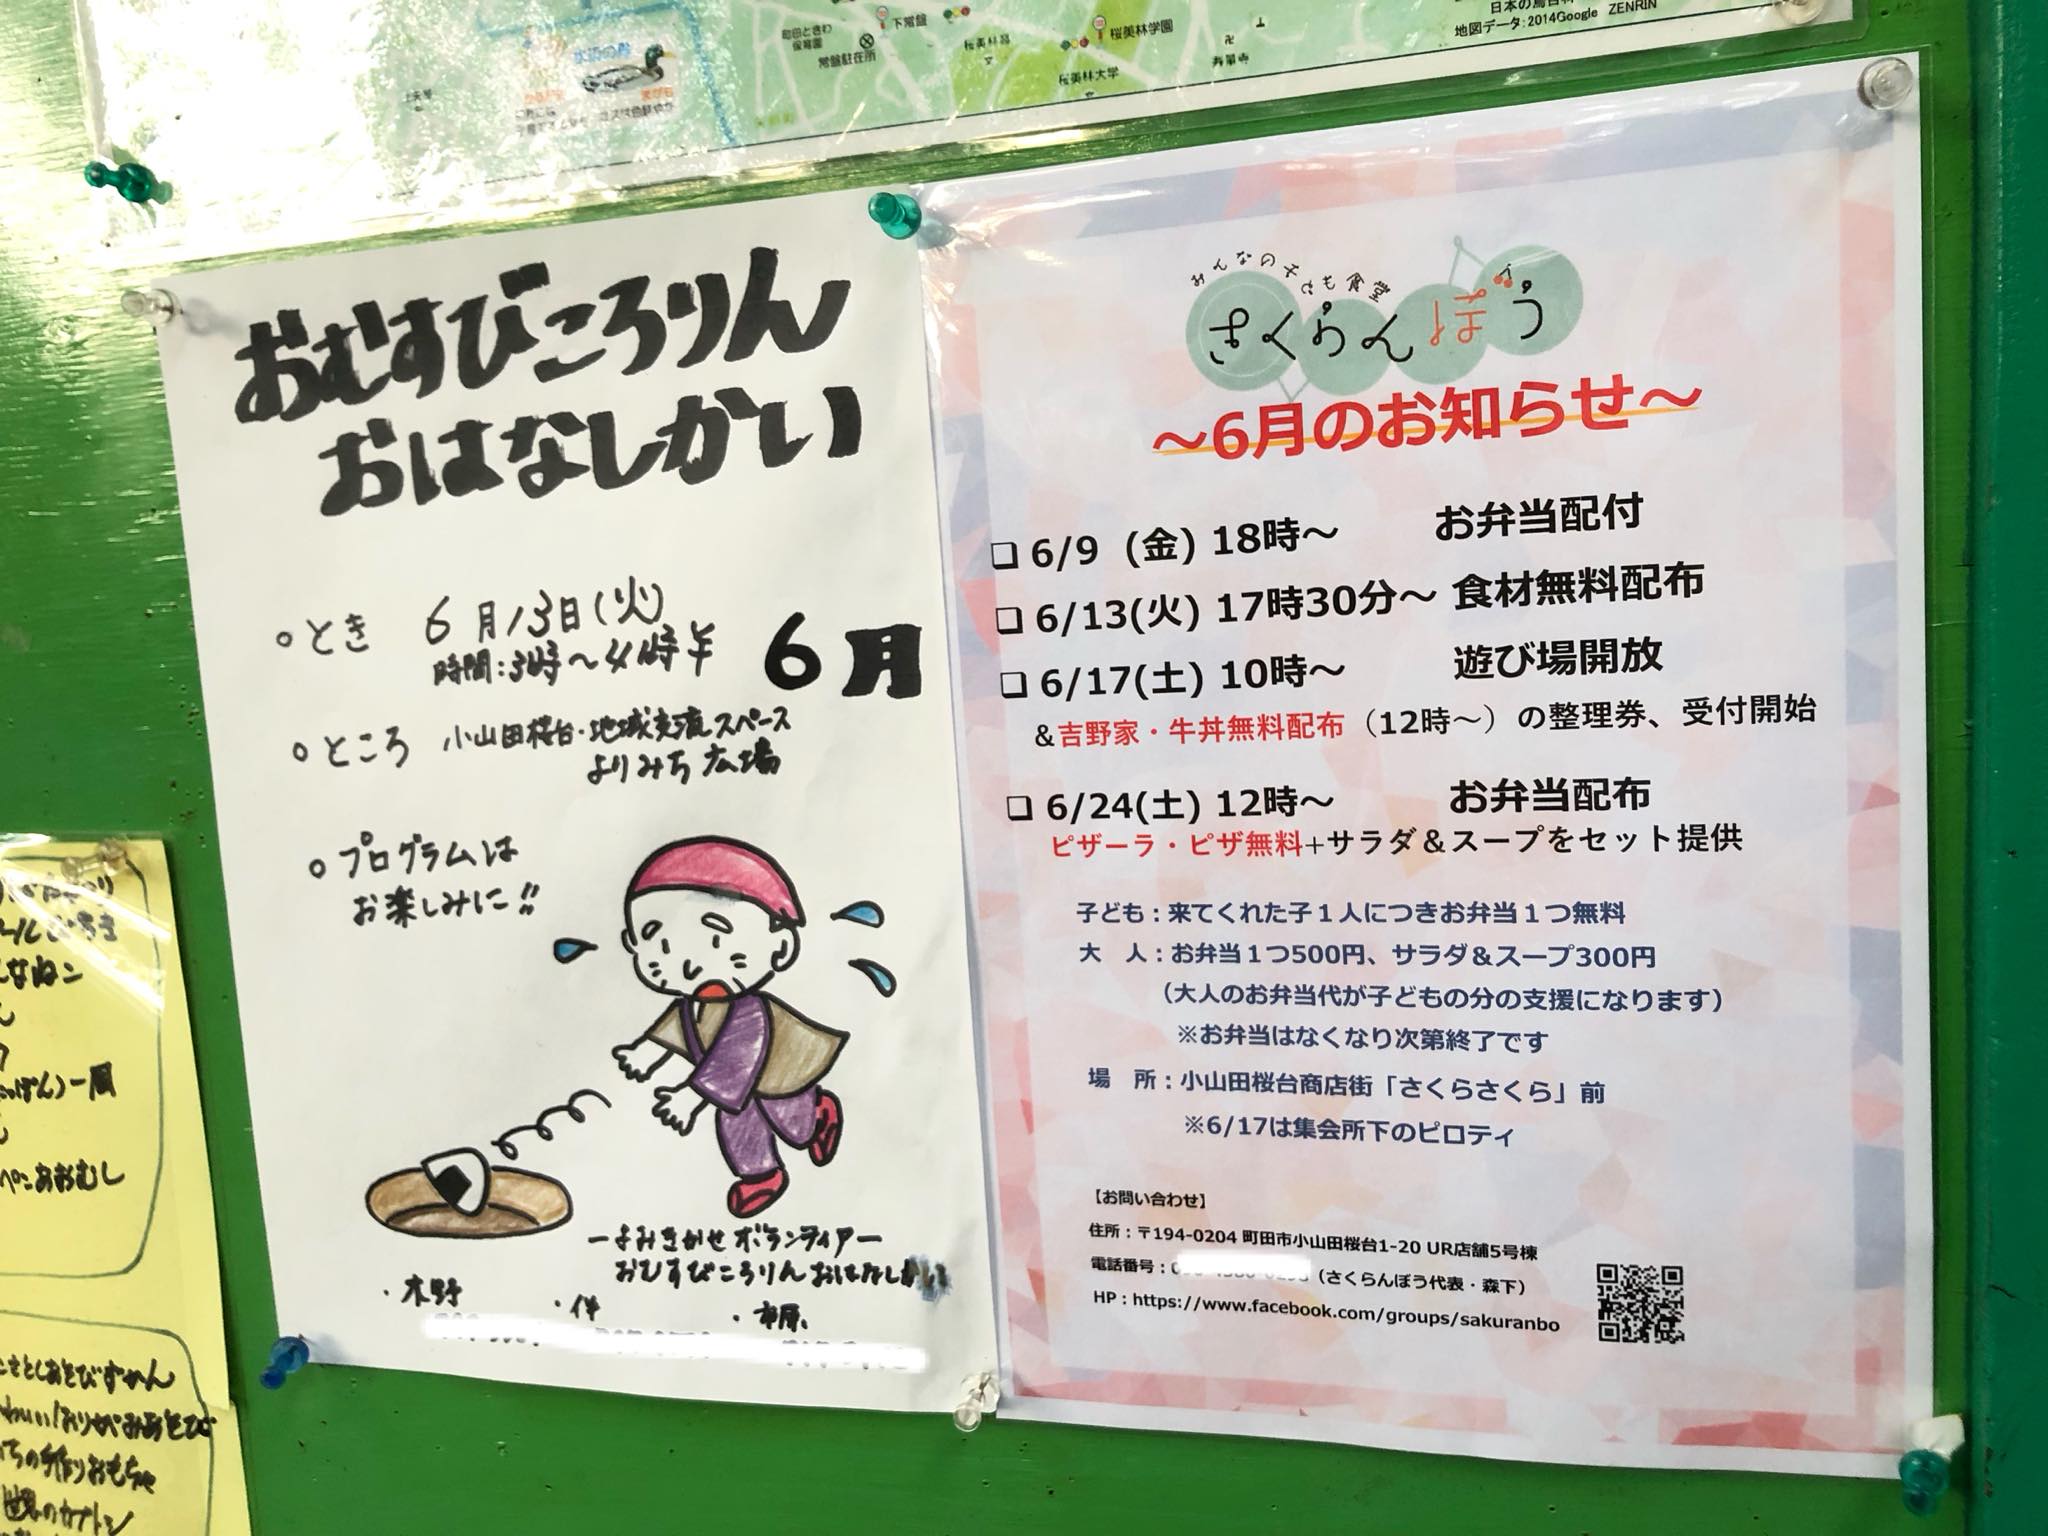 下常盤
町田ときわ
保育園
常盤駐在所
桜美林学園
桜美林大学
地図データ:2014Google ZENRIN
おむすびころりん
おはなしかい
6月
○とき 6月13日(火)
時間:3時〜4時半
○ところ 小山田桜台・地域交流スペース
よりみち広場
○プログラムは
お楽しみに!!
ーよみきかせボランティアー
おむすびころりんおはなしかい
・木野
みんなの子ども食堂
さくらんぼう
～6月のお知らせ～
❏ 6/9 (金) 18時～ お弁当配付
❏ 6/13(火) 17時30分～ 食材無料配布
❏ 6/17(土) 10時～ 遊び場開放
＆吉野家・牛丼無料配布（12時～）の整理券、受付開始
❏ 6/24(土) 12時～ お弁当配布
ピザーラ・ピザ無料+サラダ＆スープをセット提供
子ども：来てくれた子１人につきお弁当１つ無料
大 人：お弁当１つ500円、サラダ＆スープ300円
（大人のお弁当代が子どもの分の支援になります）
※お弁当はなくなり次第終了です
場 所：小山田桜台商店街「さくらさくら」前
※6/17は集会所下のピロティ
【お問い合わせ】
住所：〒194-0204 町田市小山田桜台1-20 UR店舗5号棟
電話番号： （さくらんぼう代表・森下）
HP：https://www.facebook.com/groups/sakuranbo